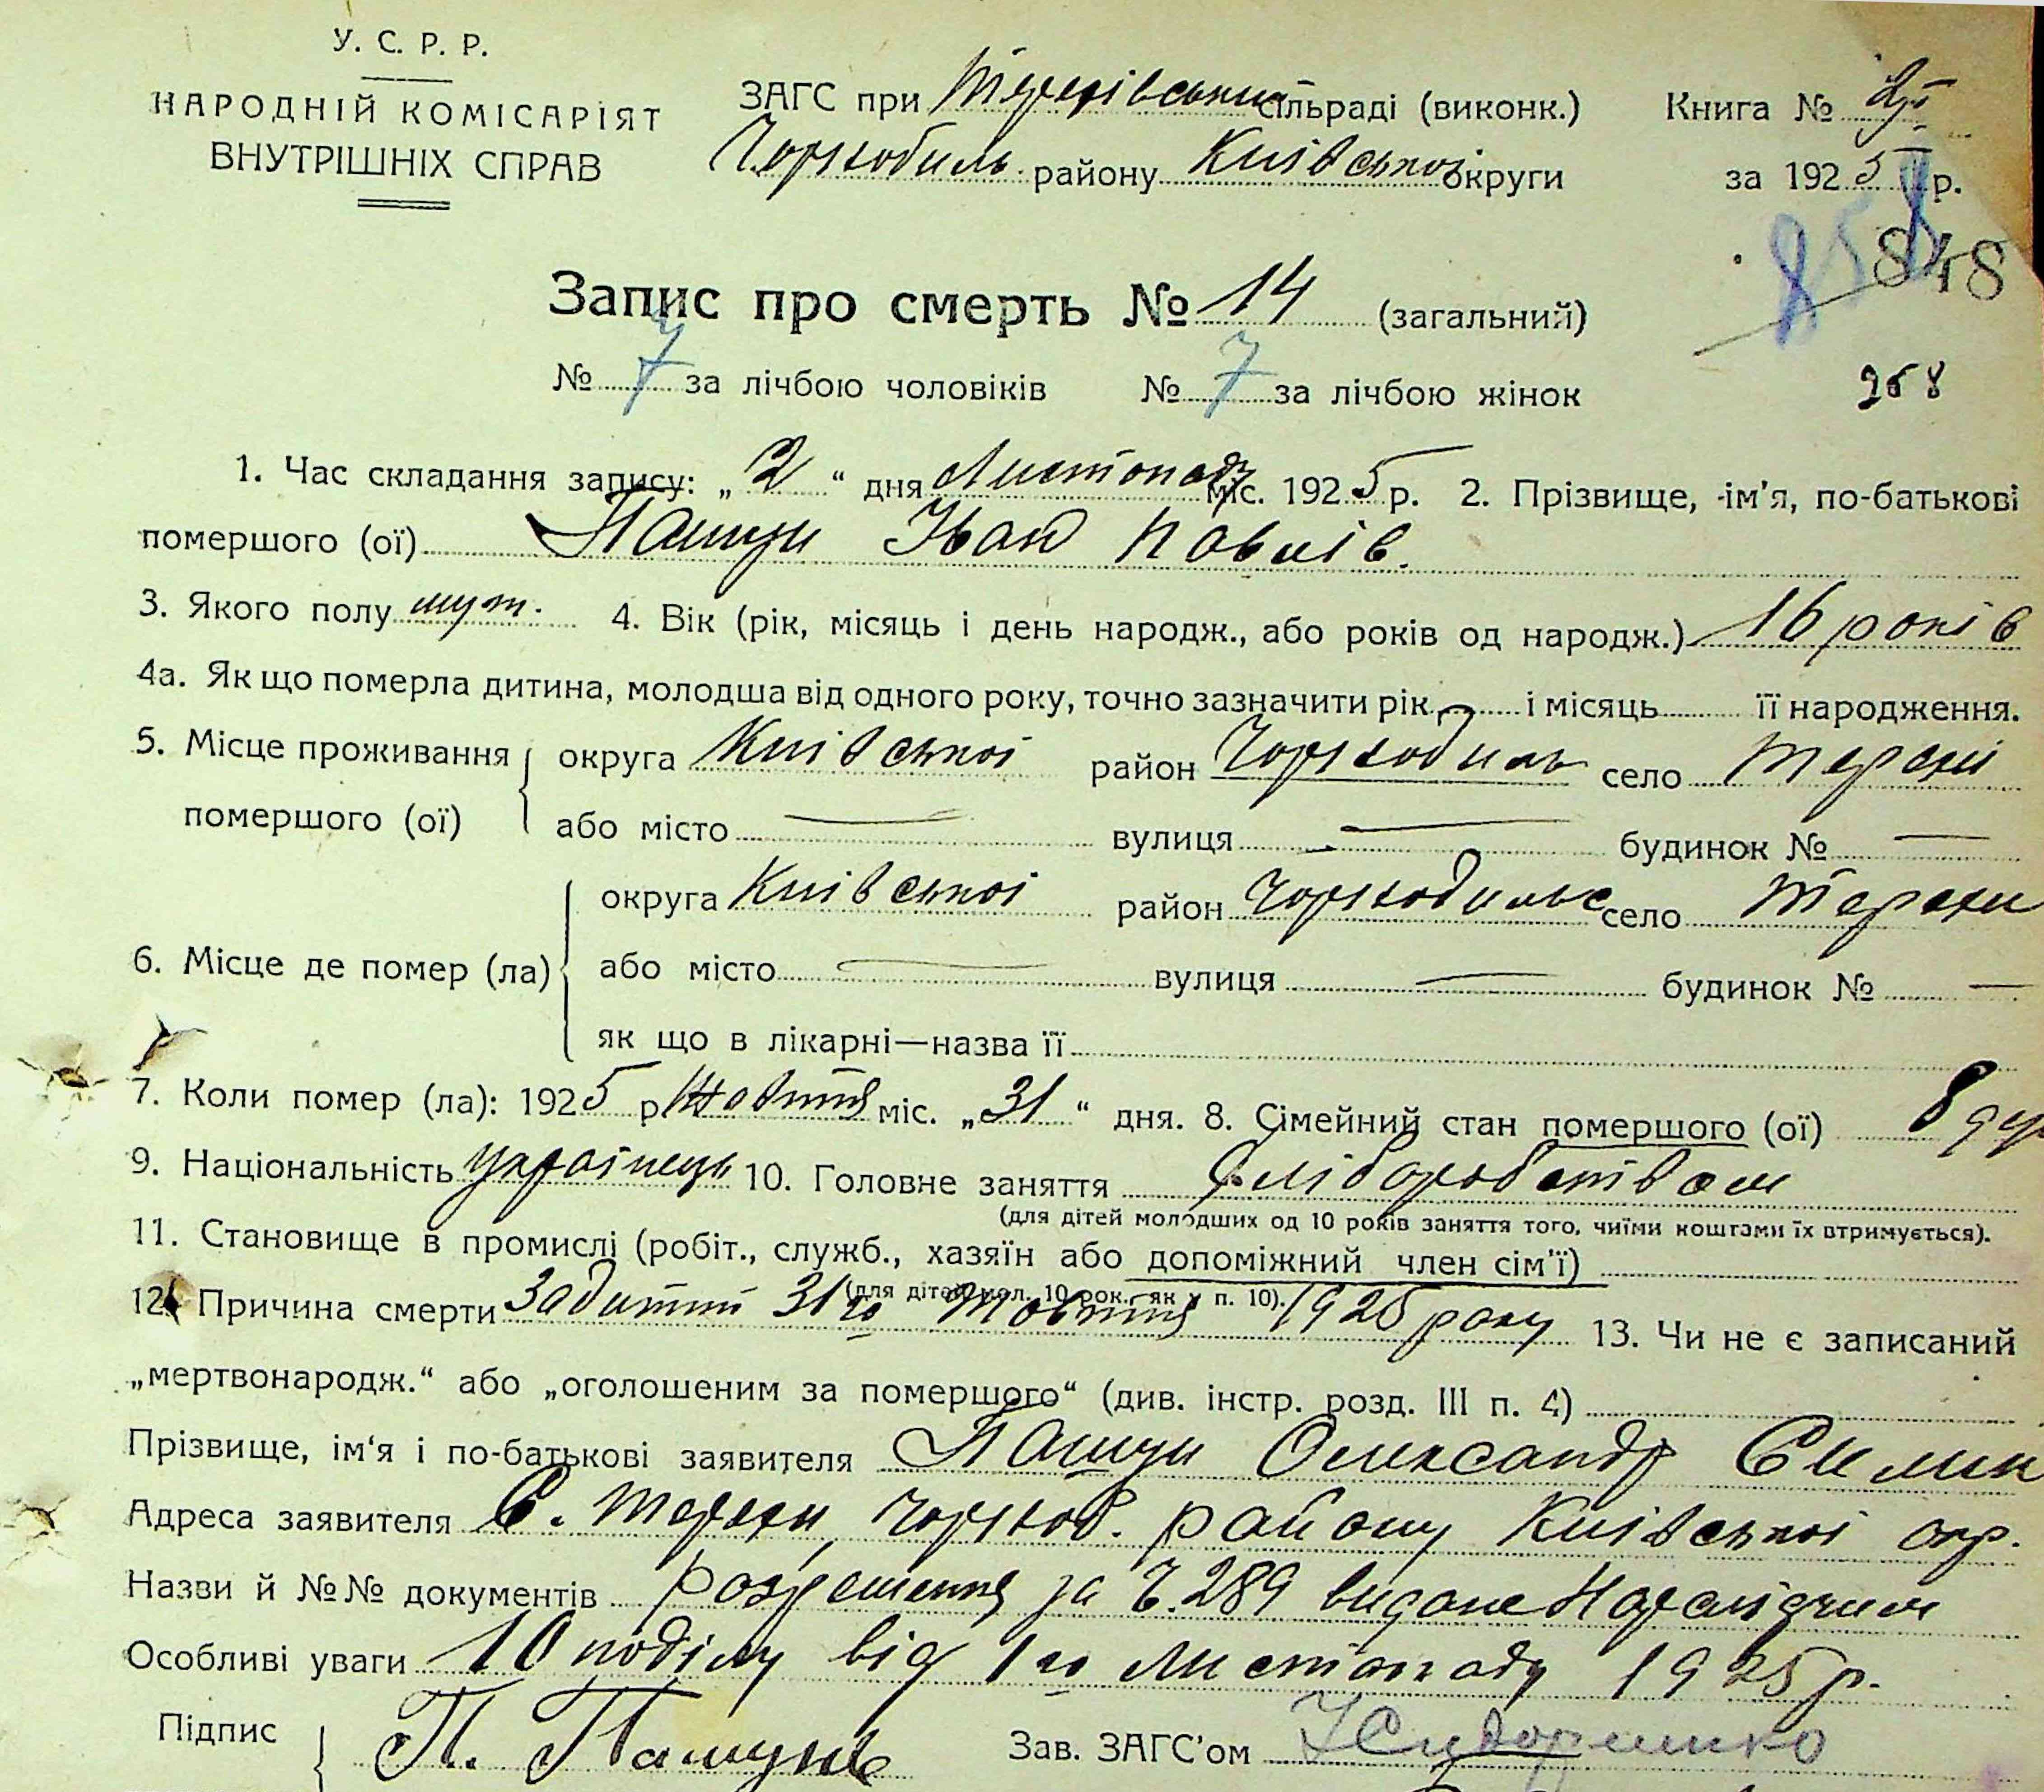 У. С. Р. Р.
НАРОДНІЙ КОМІСАРІЯТ
ВНУТРІШНІХ СПРАВ
ЗАГС при Терехівський сільраді (виконк.)
Чорнобиль району Київської округи
Книга №
за 1925 р.
858
848
Запис про смерть № 14 (загальний)
№ 7 за лічбою чоловіків № 7 за лічбою жінок
268
1. Час складання запису: „2“ дня Листопаду міс. 1925 р. 2. Прізвище, ім'я, по-батькові
помершого (ої) Іван Павлів.
3. Якого полу муж. 4. Вік (рік, місяць і день народж., або років од народж.) 16 років
4а. Як що померла дитина, молодша від одного року, точно зазначити рік і місяць її народження.
5. Місце проживання помершого (ої) округа Київської район Чорнобиль село Терехи
або місто — вулиця — будинок № —
6. Місце де помер (ла) округа Київської район Чорнобильс село Терехи
або місто — вулиця — будинок № —
як що в лікарні—назва її
7. Коли помер (ла): 1925 р Жовтня міс. „31“ дня. 8. Сімейний стан помершого (ої)
9. Національність українець 10. Головне заняття Хліборобством
(для дітей молодших од 10 років заняття того, чиїми коштами їх втримується).
11. Становище в промислі (робіт., служб., хазяїн або допоміжний член сім'ї)
(для дітей мол. 10 рок. як у п. 10).
12. Причина смерти 31го Жовтня 1925 року 13. Чи не є записаний
„мертвонародж.“ або „оголошеним за помершого“ (див. інстр. розд. III п. 4)
Прізвище, ім'я і по-батькові заявителя Олександр
Адреса заявителя С. Терехи, Чорноб. району Київської окр.
Назви й №№ документів за Ч. 289 видане Нарслідчим
Особливі уваги 10 поділу від 1го Листопаду 1925 р.
Підпис П.
Зав. ЗАГС'ом